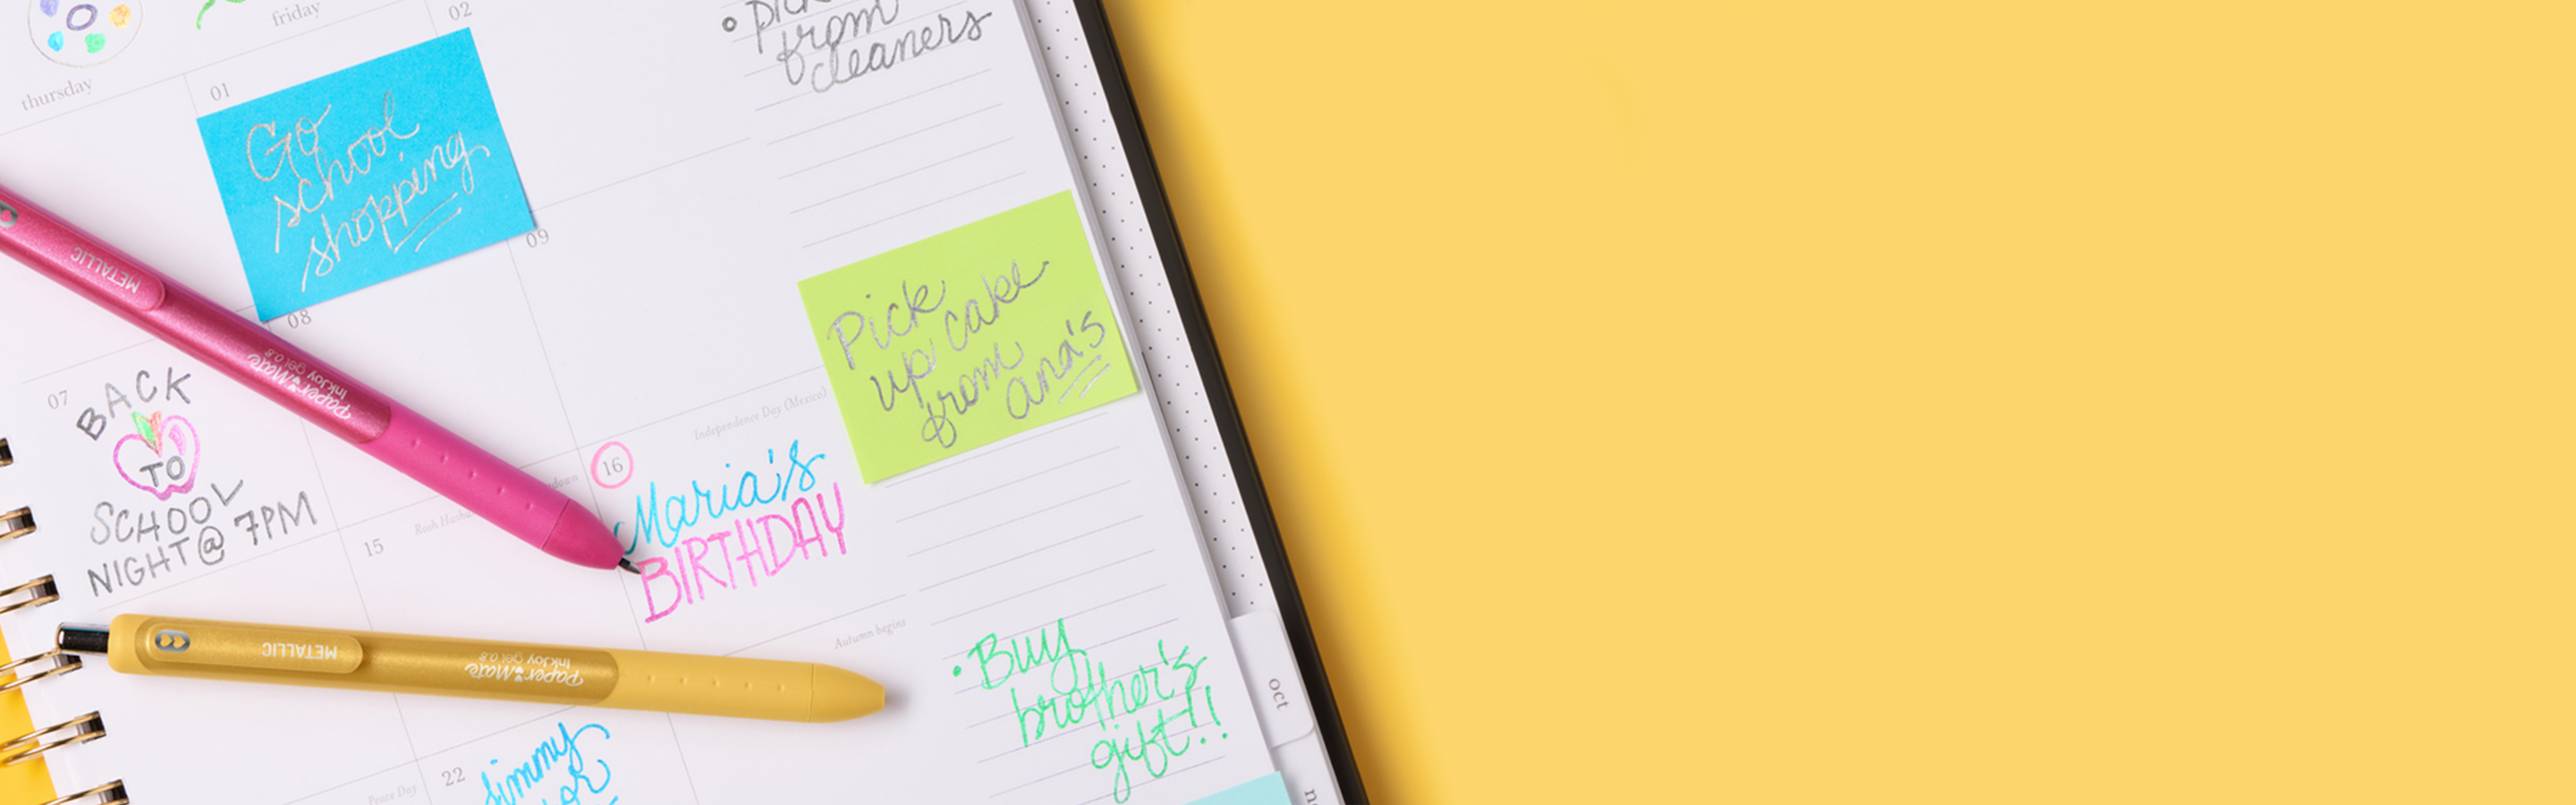 thursday
friday
01
02
Go
school
shopping
from
cleaners
07
08
09
BACK
TO
SCHOOL
NIGHT @ 7PM
Pick
up cake
from
ana's
METALLIC
Paper Mate
InkJoy gel 0.8
15
16
Independence Day (Mexico)
Maria's
BIRTHDAY
METALLIC
Paper Mate
InkJoy gel 0.8
Autumn begins
Peace Day
22
• Buy
brother's
gift!!
oct